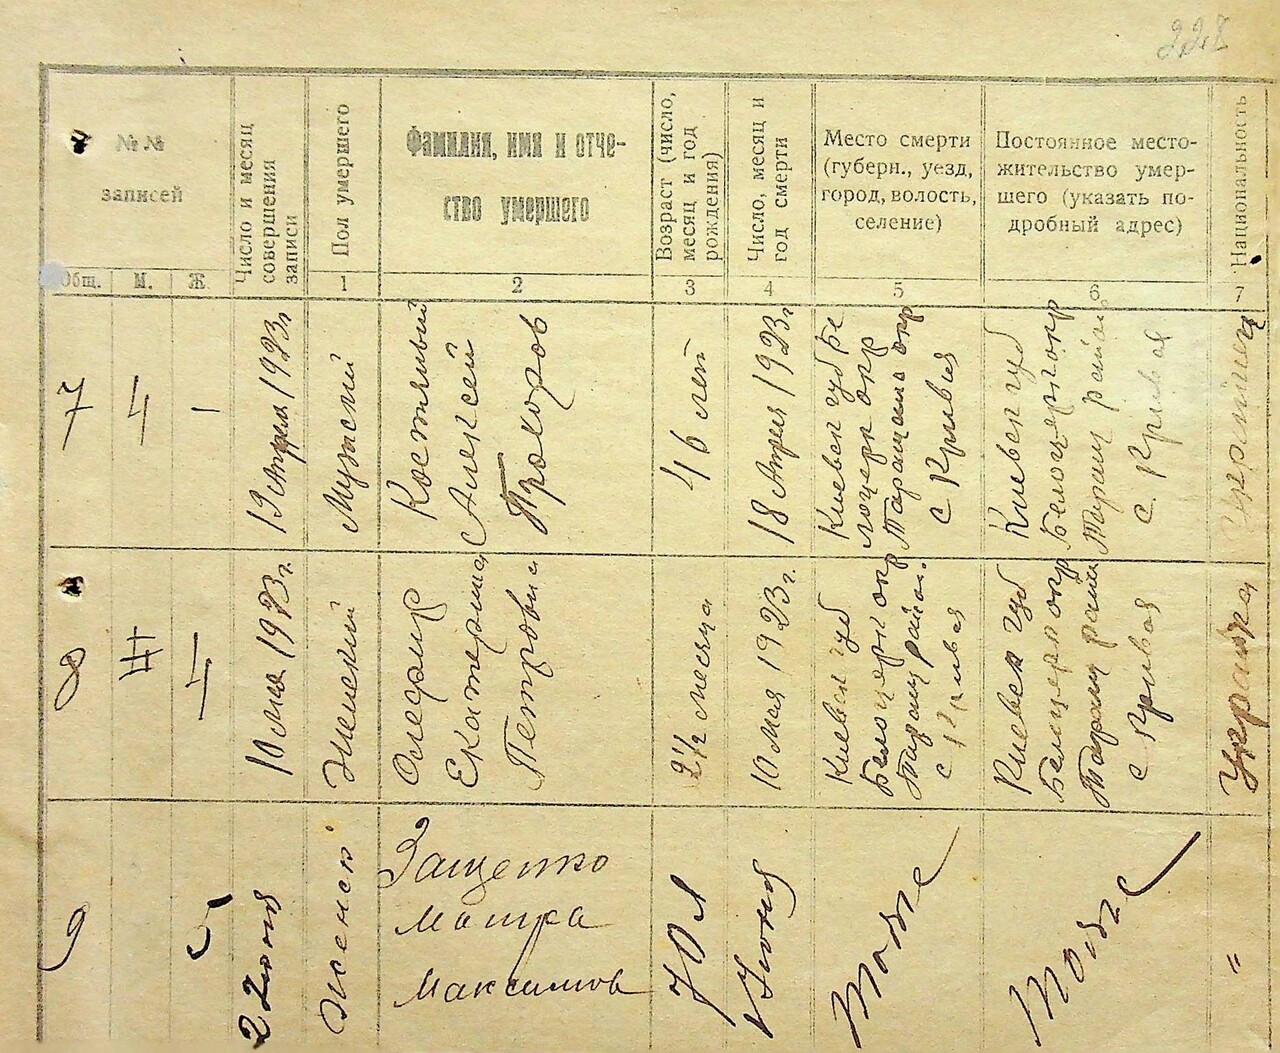 228
№ №
записей
Общ.
М.
Ж.
Число и месяц
совершения
записи
Пол умершего
1
Фамилия, имя и отче-
ство умершего
2
Возраст (число,
месяц и год
рождения)
3
Число, месяц и
год смерти
4
Место смерти
(губерн., уезд,
город, волость,
селение)
5
Постоянное место-
жительство умер-
шего (указать по-
дробный адрес)
6
Национальность
7
7
4
—
19 Апреля 1923 г
Мужской
Костливый
Алексей
Прохоров
46 лет
18 Апреля 1923 г
Киевск губ Бе
лоцерк окр
Таращан окр
с Кривая
Киевск губ
Белоцерк окр
Таращ район
с. Кривая
Украинец
8
4
10 мая 1923 г.
Женский
Екатерина
Петровна
2½ месяца
10 Мая 1923 г.
Киевск губ
Белоцерк окр
Таращ район.
с Кривая
Киевск губ
Белоцерк окр
Таращ район
с Кривая
Украинка
9
5
2 июня
Женск
Защепко
Мотра
Максимов
70 л
1 Июня
Тоже
Тоже
"